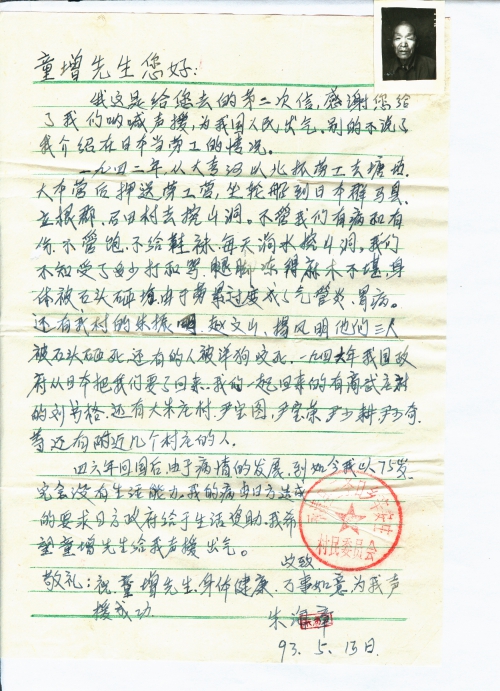 童增先生您好:
我这是给您去的第二次信,感谢您给
了我们呐喊声援,为我国人民出气。别的不说了
我介绍在日本当劳工的情况。
一九四二年,从大专河以北抓劳工去塘沽
大本营后押送劳工营,坐轮船到日本群马县
立根郡、石田村去挖山洞。不管我们有病和有
伤、不管饱、不给鞋袜、每天淌水挖山洞,我们
不知受了多少打和骂腿脚冻得麻木不堪,身
体被石头砸堆由于劳累过度成了气管炎、胃病。
还有我村的朱振明、赵文山、杨凤明他们三人
被石头砸死,还有的人被洋狗咬死,一九四六年我国政
府从日本把我们要了回来、我的一起回来的有高武庄村
的刘书格、还有大朱庄村、尹宝图、尹宝荣、尹少耕、尹子奇
等还有附近几个村庄的人。
四六年回国后由于病情的发展、到如今我以75岁
完全没有生活能力,我的病由日方造成
的要求日方政府给于生活资助,我希
望童增先生给我声援出气。
此致
敬礼:祝童增先生、身体健康、万事如意为我声
援成功
朱海章
93.5.13日
村民委员会